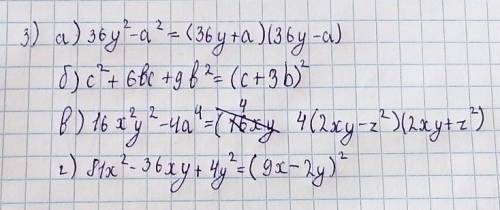 3) а) 36y²-a²=(36y+a)(36y-a)
б) c²+6bc+9b²=(c+3b)²
в) 16x²y²-4a⁴=(16xy 4 4(2xy-z²)(2xy+z²)
г) 81x²-36xy+4y²=(9x-2y)²